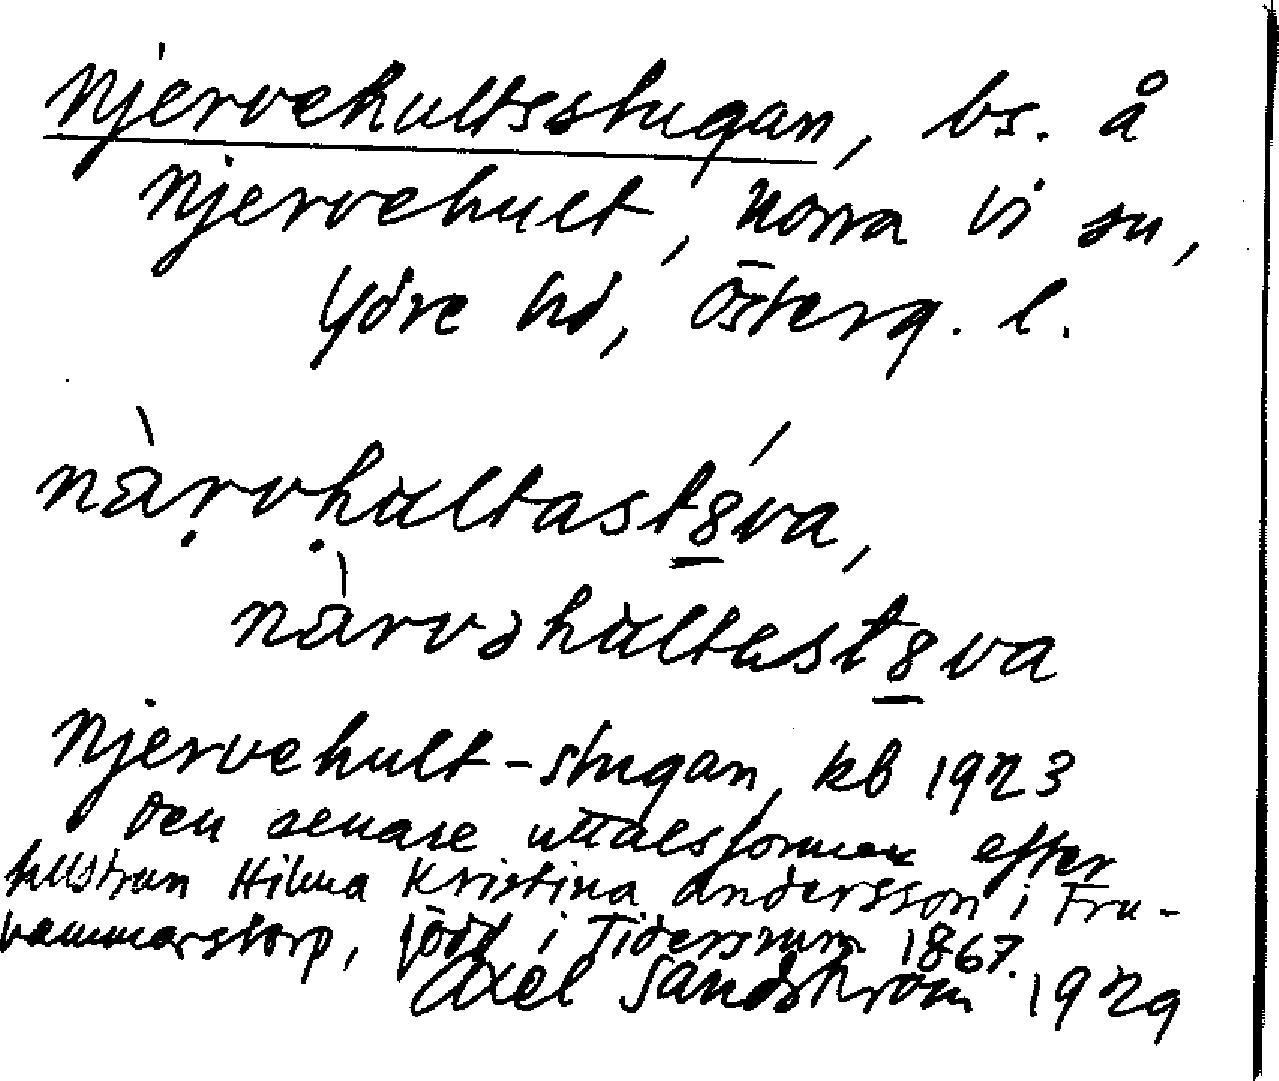 Njervehultsstugan, bs. å
Njervehult, Norra Vi sn,
Ydre hd, Österg. l.
nàrvhultast8va,
nàrvəhultast8va
Njervehult-stugan, kb 1923
Den senare uttalsformen efter
hustrun Hilma Kristina Andersson i Fru-
hammarstorp, född i Tidersrum 1867.
Axel Sandström 1929